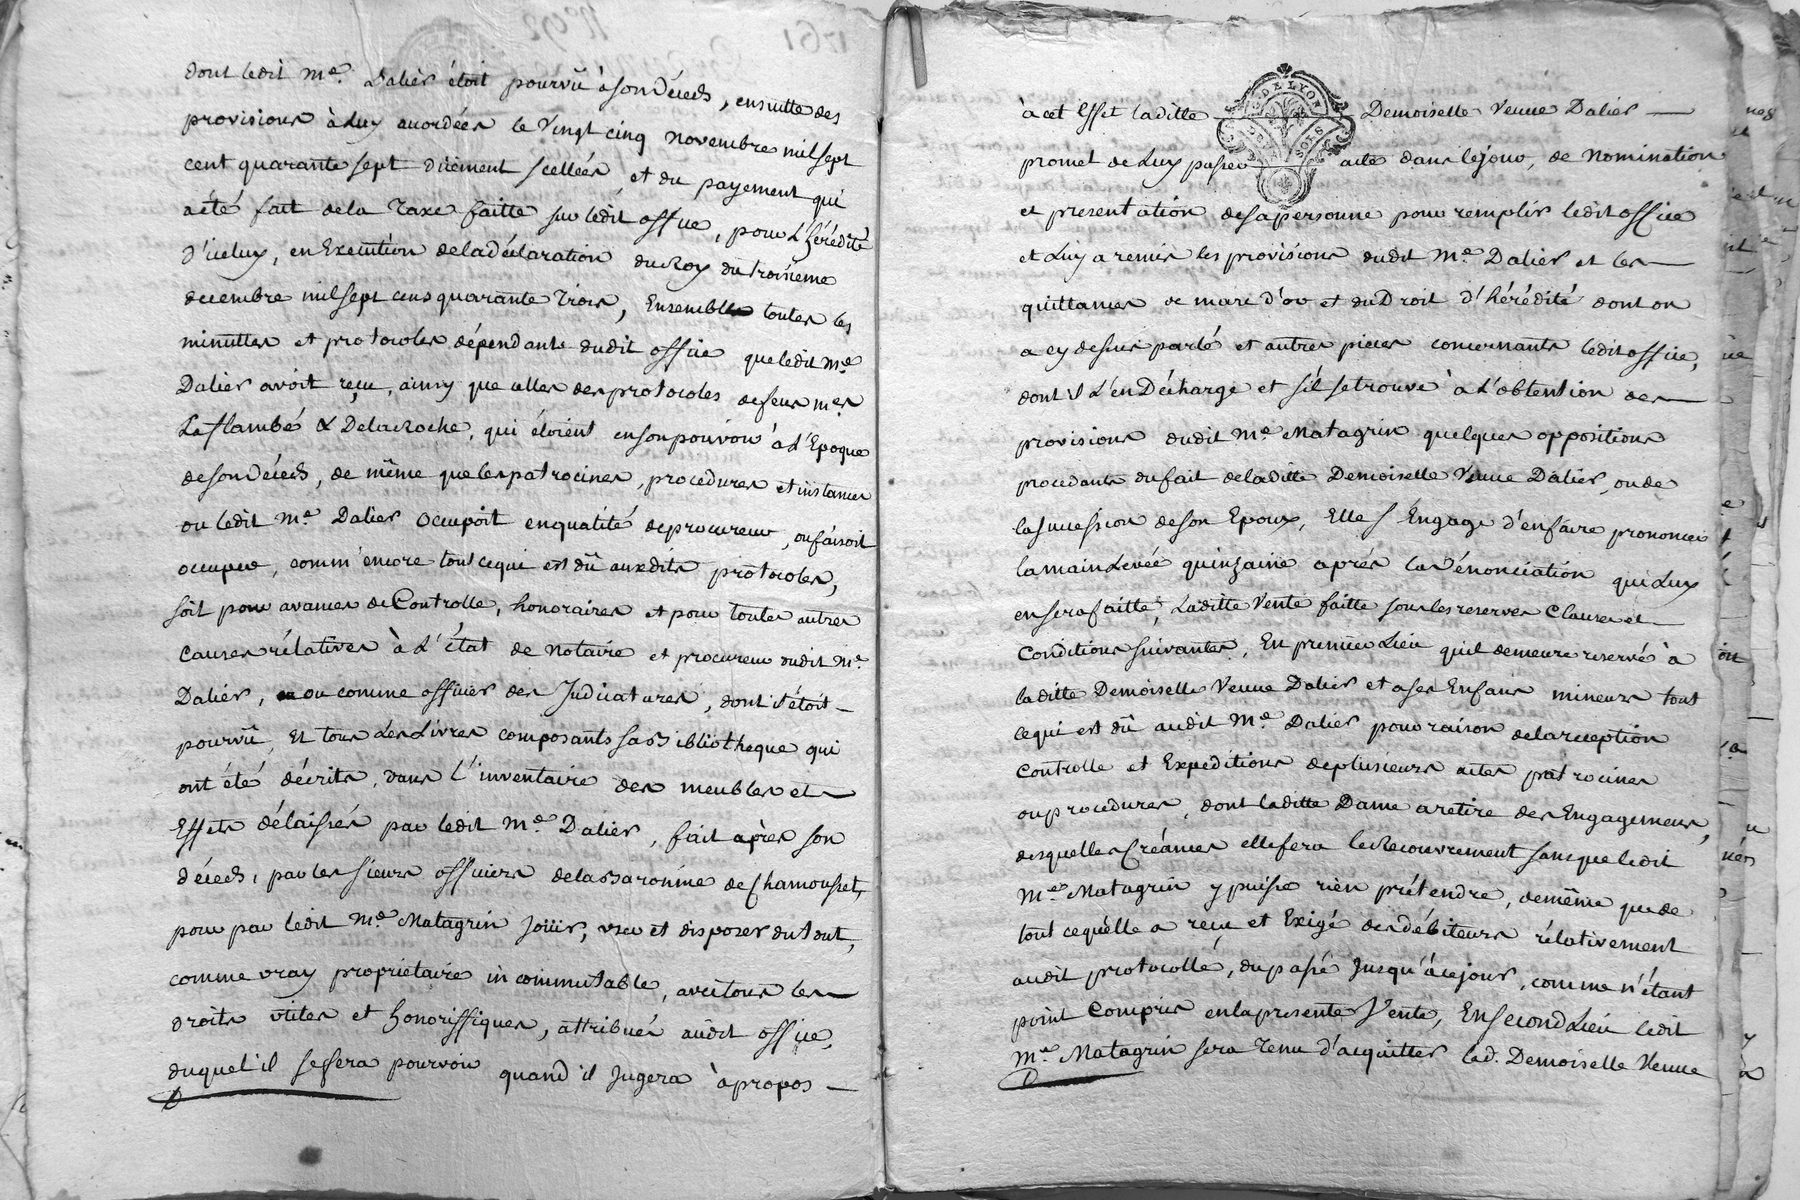 dont ledit Me. Dalier étoit pourvû à son décéds, ensuitte des
provisions à Luy accordées le Vingt cinq novembre mil sept
cent quarante sept düement scellées et du payement qui
a été fait de la Taxe faitte sur ledit office, pour L'hérédité
d'iceluy, en Exécution de la déclaration du Roy du troisième
decembre mil sept cens quarante Trois, Ensemble toutes les
minuttes et protocoles dépendants dudit office que ledit Me
Dalier avoit reçu, ainsy que celles des protocoles de feus mes
Laflambé & Delaroche, qui étoient en son pouvoir à L'Epoque
de son décéds, de même que les patrocines, procedures et instances
ou ledit Me. Dalier occupoit en qualité de procureur, ou faisoit
occuper, comm'encore tout ce qui est dû auxdits protocoles,
soit pour avances de Controlle, honoraires et pour toutes autres
causes rélatives à L'état de notaire et procureur dudit Me.
Dalier, ou comme officier des Judicatures, dont il étoit
pourvû, Et tous Les Livres composants sa Bibliotheque qui
ont été décrits, dans L'inventaire des meubles et
Effets délaissés par ledit Me. Dalier, fait après son
décéds, par les sieurs officiers de la Baronnie de Chamousset,
pour par ledit Me. Matagrin Joüir, user et disposer du tout,
comme vray propriétaire incommutable, avec tous les
droits utiles et honoriffiques, attribués audit office,
duquel il se fera pourvoir quand il Jugera à propos
à cet Effet laditte Demoiselle Veuve Dalier
promet de Luy passer acte dans le jour, de nomination
et presentation de sa personne pour remplir ledit office
et Luy a remis les provisions dudit Me. Dalier et les
quittances de marc d'or et du Droit d'hérédité dont on
a cy dessus parlé et autres pieces concernants ledit office,
dont il L'en Décharge et s'il se trouve à L'obtention des
provisions dudit Me. Matagrin quelques oppositions
procedants du fait de laditte Demoiselle Veuve Dalier, ou de
la succession de son Epoux, Elle s'Engage d'en faire prononcer
la main Levée quinzaine après la dénonciation qui Luy
en sera faitte, Laditte Vente faitte sous les reserves Clauses et
Conditions suivantes, En premier Lieu qu'il demeure reservé à
laditte Demoiselle Veuve Dalier et a ses Enfans mineurs tout
ce qui est dû audit Me. Dalier pour raison de la reception
Controlle et Expeditions de plusieurs actes patrocines
ou procedures, dont laditte Dame a retiré des Engagemens,
desquelles Créances elle fera le Recouvrement sans que ledit
Me. Matagrin y puisse rien prétendre, de même que de
tout ce qu'elle a reçu et Exigé des débiteurs rélativement
audit protocolle, du passé Jusqu'à ce jour, comme n'étant
point Compris en la presente Vente, En second Lieu ledit
Me. Matagrin sera Tenu d'acquitter lad. Demoiselle Veuve
G. DE LYON
DEUX SOLS